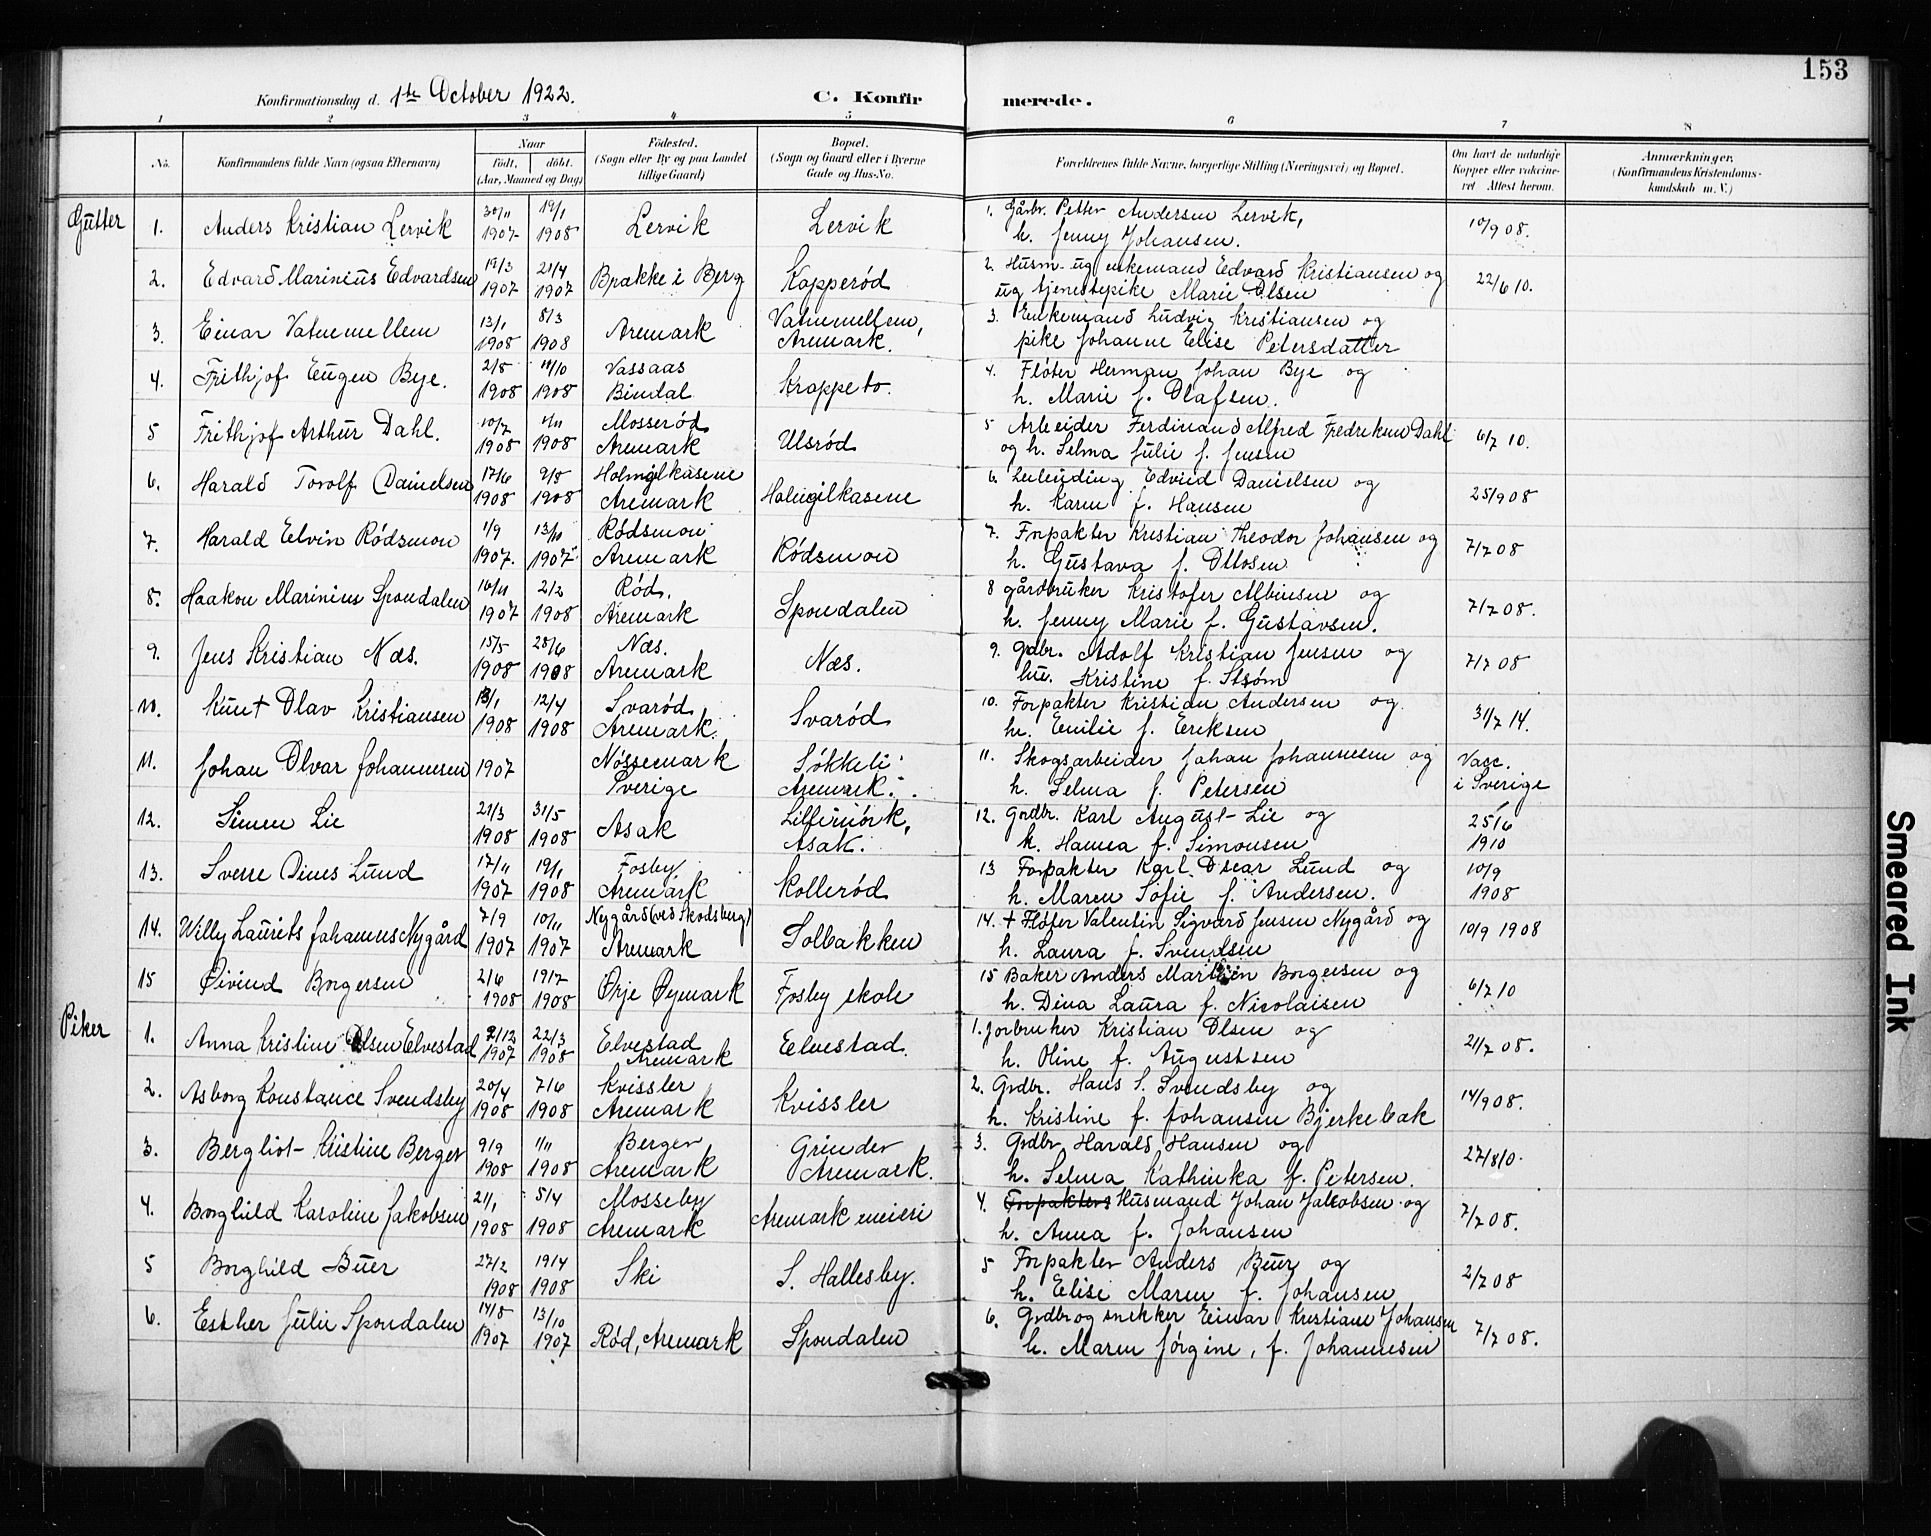 153
Konfirmationsdag d. 1ste October 1922.
C. Konfirmerede.
1 2 3 4 5 6 7 8
No.
Konfirmandens fulde Navn (ogsaa Efternavn)
Naar
født, døbt.
(Aar, Maaned og Dag)
Fødested.
(Sogn eller By og paa Landet
tillige Gaard)
Bopæl.
(Sogn og Gaard eller i Byerne
Gade og Hus-No.
Forældrenes fulde Navne, borgerlige Stilling (Næringsvei) og Bopæl.
Om havt de naturlige
Kopper eller vakcine-
ret. Attest herom.
Anmærkninger.
(Konfirmandens Kristendoms-
kundskab m. V.)
Gutter
1. Anders Kristian Lervik 30/11 1907 19/1 1908 Lervik Lervik
1. Gårbr. Petter Andersen Lervik, 10/9 08.
h. Jenny Johansen.
2. Edvard Marinius Edvardsen 19/3 1907 21/4 1907 Brakke i Berg Kapperød
2. Husm. ug enkemand Edvard Kristiansen og 22/6 10.
ug tjenestepike Marie Olsen
3. Einar Vatnemellem 13/1 1908 8/3 1908 Aremark Vatnemellem, Aremark.
3. Enkemand Ludvig Kristiansen og
pike Johanne Elise Petersdatter
4. Frithjof Eugen Bye. 2/8 1908 11/10 1908 Vassaas Bindal Kroppeto.
4. Fløter Herman Johan Bye og
h. Marie f. Olafsen.
5 Frithjof Arthur Dahl. 10/7 1908 1/11 1908 Mosserød Aremark Ulsrød
5 Arbeider Ferdinand Alfred Fredriksen Dahl 6/7 10.
og h. Selma Julie f. Jensen
6. Harald Torolf Danielsen 17/6 1908 9/8 1908 Holmgilkasene Aremark Holmgilkasene
6. Leilending Edvind Danielsen og 25/9 08
h. Karen f. Hansen
7. Harald Elvin Rødsmon 1/9 1907. 13/10 1907. Rødsmon Aremark Rødsmon
7. Forpakter Kristian Theodor Johansen og 7/7 08
h. Gustava f. Ottosen
8. Haakon Marinius Spondalen 10/11 1907 2/2 1908 Rød. Aremark Spondalen
8 gårdbruker Kristofer Albinsen og 7/7 08.
h. Jenny Marie f. Gustavsen.
9. Jens Kristian Næs. 15/5 1908 28/6 1908 Næs. Aremark Næs.
9. Grdbr. Adolf Kristian Jensen og 7/7 08
hu. Kristine f. Strøm
10. Knut Olav Kristiansen 13/1 1908 12/4 1908 Svarød Aremark. Svarød
10. Forpakter Kristian Andersen og 31/7 14.
hu. Emilie f. Eriksen
11. Johan Olvar Johannesen 1907 Nössemark Sverige Søkkeli Aremark.
11. Skogsarbeider Johan Johannesen og Vacc.
h. Selma f. Petersen i Sverige
12. Simen Lie 21/3 1908 31/5 1908 Asak Asak.
12. Grdbr. Karl August Lie og 25/6
h. Hanna f. Simonsen 1910
13. Sverre Dines Lund 17/11 1907 19/1 1908 Fosby. Aremark Kollerød
13 Forpakter Karl Oscar Lund og 10/9
h. Maren Sofie f. Andersen. 1908
14. Willy Laurits Johannes Nygård 7/9 1907 10/11 1907 Nygård (ved Skodsberg) Aremark Solbakken
14. + Fløter Valentin Sigvard Jensen Nygård og 10/9 1908
h. Laura f. Svendsen
15 Øivind Borgersen 2/6 1908 19/7 1908 Ørje Øymark Fosby skole
15 Baker Anders Martin Borgersen og 6/7 10
h. Dina Laura f. Nicolaisen
Piker
1. Anna Kristine Olsen Elvestad 2/12 1907 22/3 1908 Elvestad Aremark Elvestad.
1. Jorbruker Kristian Olsen og 21/7 08.
h. Oline f. Augustsen
2. Asborg Konstance Svendsby 20/4 1908 7/6 1908 Kvissler Aremark Kvissler
2. Grdbr. Hans S. Svendsby og 14/9 08.
h. Kristine f. Johansen Bjerkebak
3. Bergliot Kristine Berger 9/9 1908 1/11 1908 Berger Aremark Grinder Aremark.
3. Grdbr. Harald Hansen og 27/8 10.
h. Selma Kathinka f. Petersen.
4. Borghild Karoline Jakobsen 21/1 1908 5/4 1908 Mosseby Aremark Aremark meieri
4. Forpakter Husmand Johan Jakobsen og 7/7 08.
h. Anna f. Johansen
5 Borghild Buer 27/2 1908 19/4 1908 Ski S. Hallesby.
5 Forpakter Anders Buer og 2/7 08
h. Elise Maren f. Johansen
6. Esther Julie Spondalen 14/8 1907 13/10 1907 Rød, Aremark Spondalen
6. Grdbr og snekker Einar Kristian Johansen 7/7 08.
h. Maren Jørgine, f. Johannesen
Smeared Ink